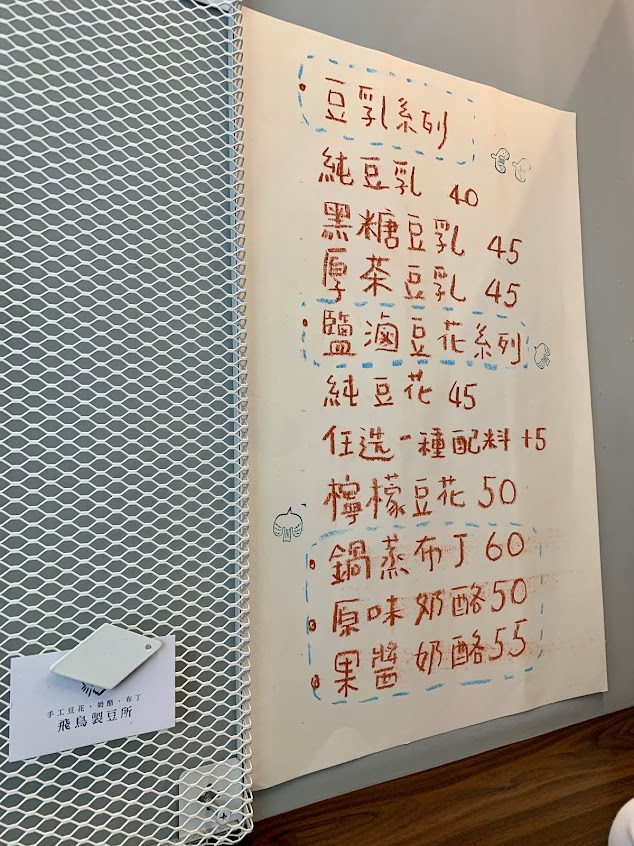 豆乳系列
純豆乳 40
黑糖豆乳 45
厚茶豆乳 45
鹽滷豆花系列
純豆花 45
任选一種配料 +5
檸檬豆花 50
鍋蒸布丁 60
原味奶酪 50
果醬奶酪 55
手工豆花・奶酪・布丁
飛鳥製豆所